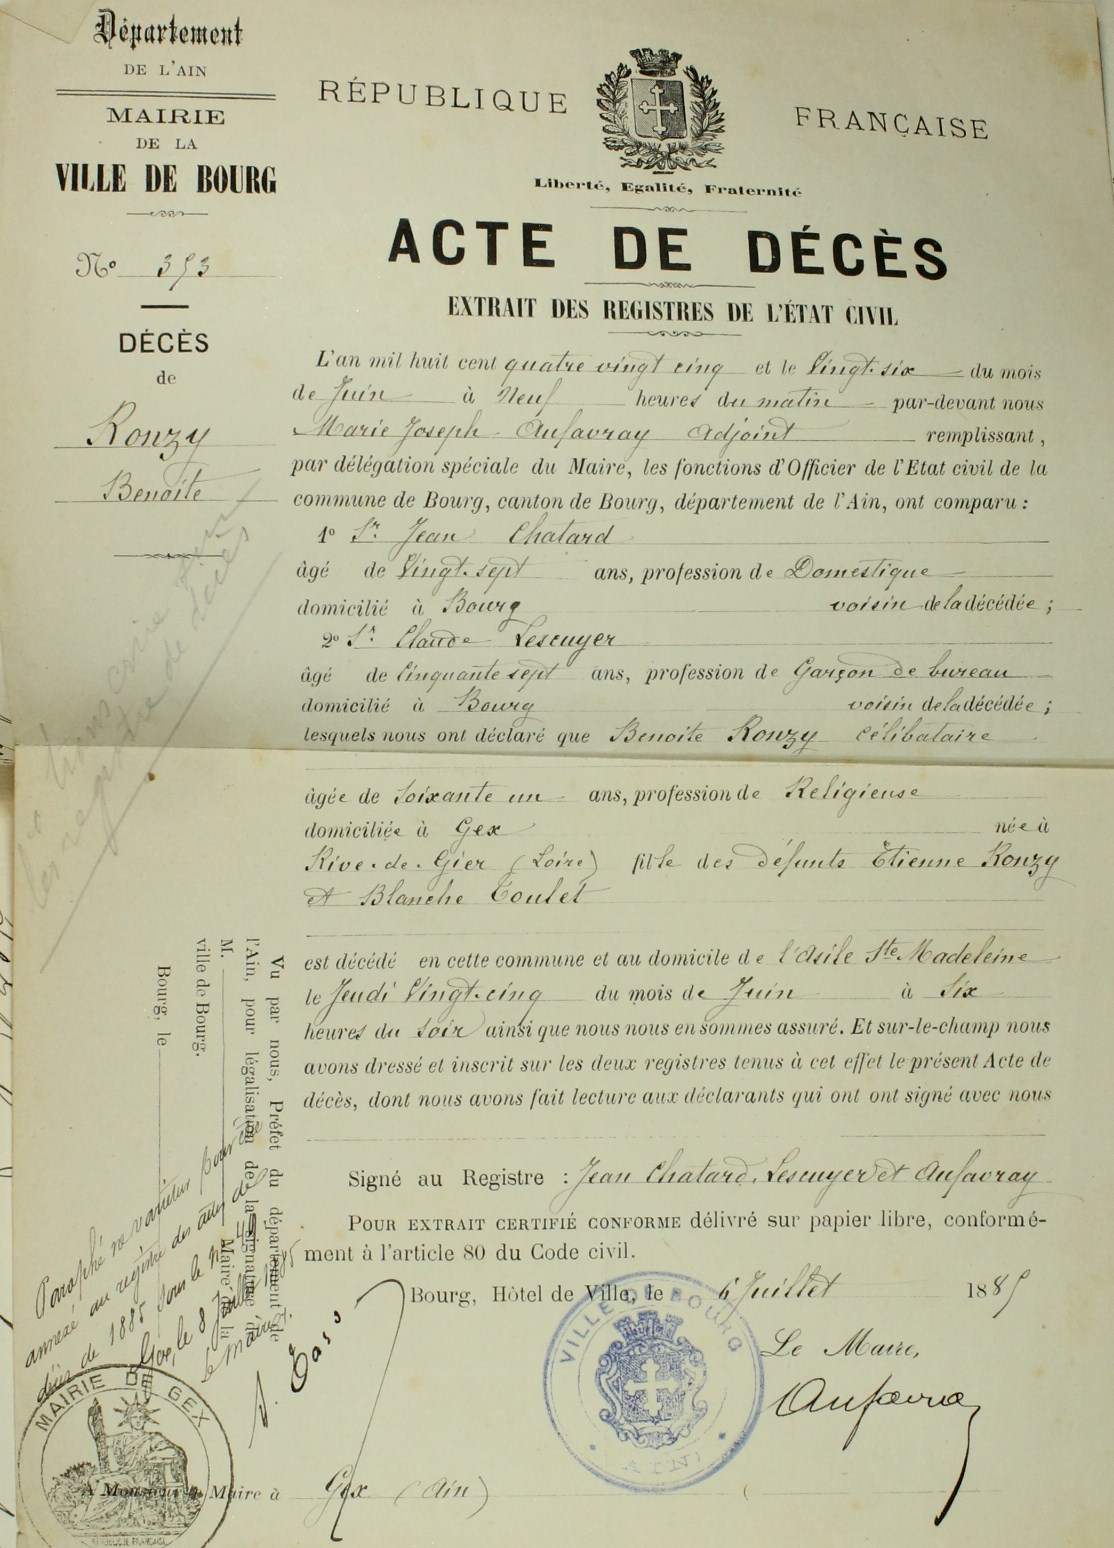 Département
DE L'AIN
MAIRIE
DE LA
VILLE DE BOURG
Nº 353
DÉCÈS
de
Ronzy
Benoite
RÉPUBLIQUE FRANÇAISE
Liberté, Egalité, Fraternité
ACTE DE DÉCÈS
EXTRAIT DES REGISTRES DE L'ÉTAT CIVIL
L'an mil huit cent quatre vingt cinq et le Vingt-six du mois
de Juin à Neuf heures du matin par-devant nous
Marie Joseph Aufavray Adjoint remplissant,
par délégation spéciale du Maire, les fonctions d'Officier de l'Etat civil de la
commune de Bourg, canton de Bourg, département de l'Ain, ont comparu :
1º Sr. Jean Chatard
âgé de Vingt-sept ans, profession de Domestique
domicilié à Bourg voisin de la décédée ;
2º Sr. Claude Lescuyer
âgé de Cinquante sept ans, profession de Garçon de bureau
domicilié à Bourg voisin de la décédée ;
lesquels nous ont déclaré que Benoite Ronzy célibataire
âgée de Soixante un ans, profession de Religieuse
domiciliée à Gex née à
Rive-de-Gier (Loire) fille des défunts Etienne Ronzy
et Blanche Toulet
est décédé en cette commune et au domicile de l'Asile Ste Madeleine
le Jeudi Vingt-cinq du mois de Juin à Six
heures du soir ainsi que nous nous en sommes assuré. Et sur-le-champ nous
avons dressé et inscrit sur les deux registres tenus à cet effet le présent Acte de
décès, dont nous avons fait lecture aux déclarants qui ont ont signé avec nous
Signé au Registre : Jean Chatard, Lescuyer et Aufavray
POUR EXTRAIT CERTIFIÉ CONFORME délivré sur papier libre, conformé-
ment à l'article 80 du Code civil.
Bourg, Hôtel de Ville, le 6 Juillet 1885
Le Maire,
Aufavray
VILLE DE BOURG
AIN
Vu par nous, Préfet du département de
l'Ain, pour légalisation de la signature de
M. Maire de la
ville de Bourg.
Bourg, le
Paraphé ne varietur pour être
annexé au registre des actes de
décès de 1885 sous le nº 49
Gex, le 8 Juillet 1885
le Maire,
MAIRIE DE GEX
REPUBLIQUE FRANÇAISE
A Monsieur le Maire à Gex (Ain)